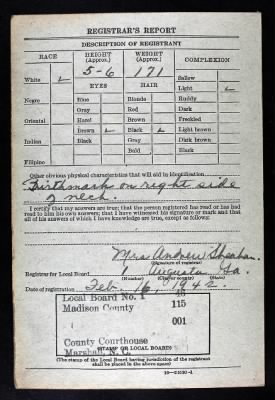 REGISTRAR'S REPORT
DESCRIPTION OF REGISTRANT
RACE HEIGHT (Approx.) WEIGHT (Approx.) COMPLEXION
White 5-6 171 Sallow
EYES HAIR Light
Negro Blue Blonde Ruddy
Gray Red Dark
Oriental Hazel Brown Freckled
Brown Black Light brown
Indian Black Gray Dark brown
Bald Black
Filipino
Other obvious physical characteristics that will aid in identification
Birthmark on right side
of neck.
I certify that my answers are true; that the person registered has read or has had
read to him his own answers; that I have witnessed his signature or mark and that
all of his answers of which I have knowledge are true, except as follows:
Mrs Andrew Sheahan.
(Signature of registrar)
Registrar for Local Board Augusta Ga.
(Number) (City or county) (State)
Date of registration Feb. 16, 1942.
Local Board No. 1
Madison County 115
001
County Courthouse
Marshall, N. C.
(STAMP OF LOCAL BOARD)
(The stamp of the Local Board having jurisdiction of the registrant
shall be placed in the above space)